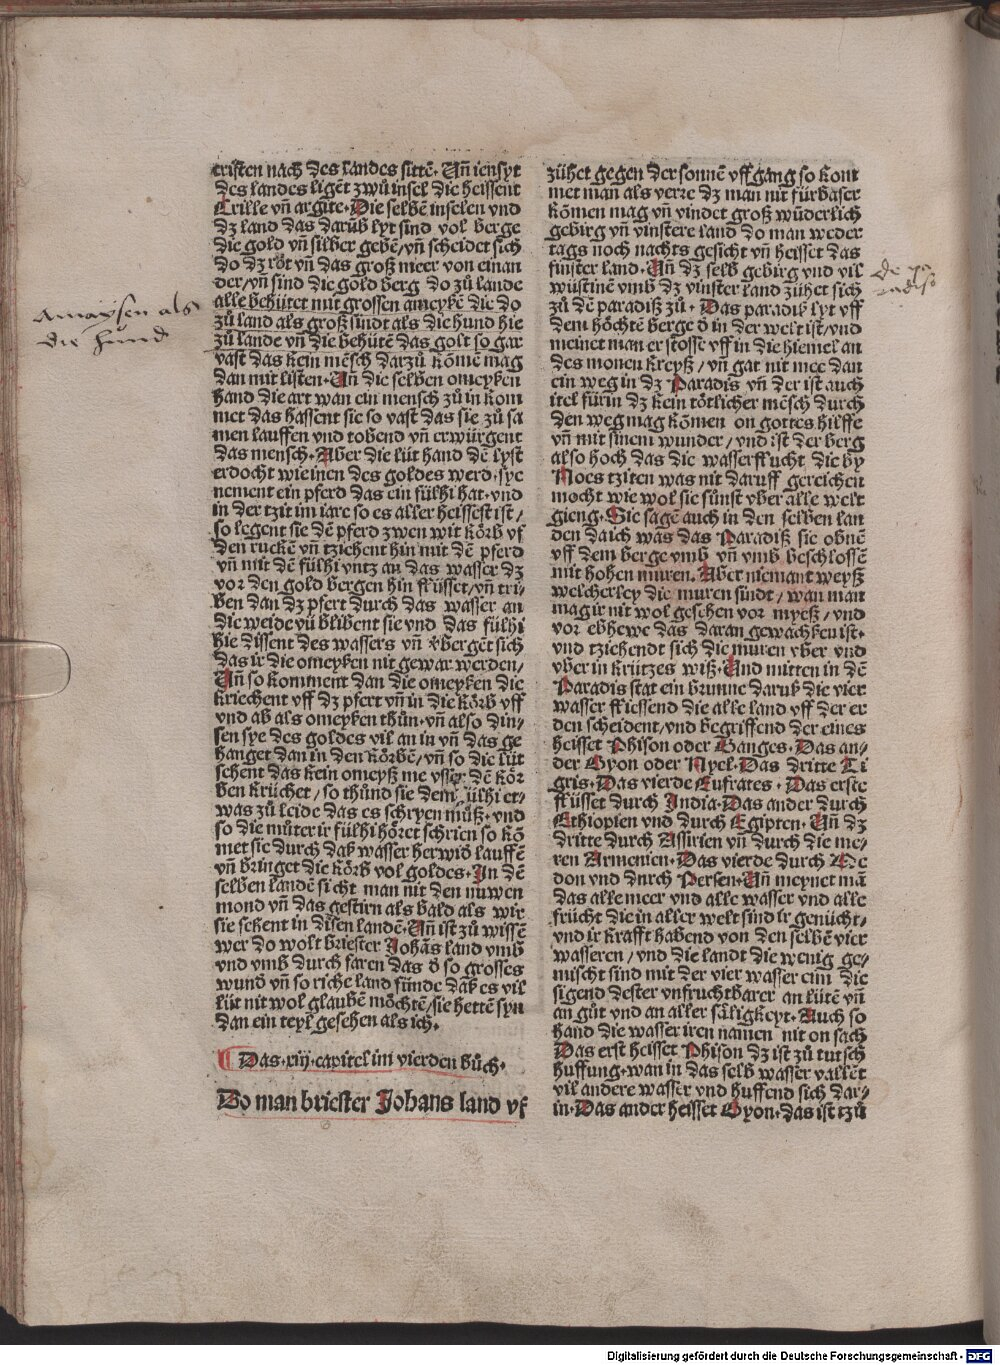 cristen nach des landes sittē. Uñ iensyt
des landes ligēt zwů insel die heissent
Crille vñ argite. Die selbē inselen vnd
dz land das darūb lyt sind vol berge
die gold vñ silber gebē/vñ scheidet sich
do dz rot vñ das groß meer von einan
der/vñ sind die gold berg do zů lande
alle behůtet mit grossen ameyßē die do
zů land als groß sindt als die hund hie
zů lande vñ die behůtē das golt so gar
vast das kein mēsch darzů kōmē mag
dan mit listen. Uñ die selben omeyßen
hand die art wan ein mensch zů in kom
met das hassent sie so vast das sie zů sa
men lauffen vnd tobend vñ erwürgent
das mensch. Aber die lüt hand dē lyst
erdocht wie inen des goldes werd. sye
nement ein pferd das ein fülhi hat. vnd
in der tzit im iare so es aller heissest ist/
so legent sie dē pferd zwen wit kōrb vf
den ruckē vñ tziehent hin mit dē pferd
vñ mit dē fülhi vntz an das wasser dz
vor den gold bergen hin flüsset/vñ tri-
ben dan dz pfert durch das wasser an
die weide vñ blibent sie vnd das fülhi
hie dissent des wassers vñ v̄bergēt sich
das ir die omeyßen nit gewar werden/
Uñ so komment dan die omeyßen die
kriechent vff dz pfert vñ in die kōrb vff
vnd ab als omeyßen thůn. vñ also din-
sen sye des goldes vil an in vñ das ge
hanget dan in den kōrbē/vñ so die lüt
sehent das kein omeyß me vsser dē kōr
ben krüchet/so thůnd sie dem fülhi et-
was zů leide das es schryen můß. vnd
so die můter ir fülhi hōret schrien so kō
met sie durch daß wasser herwid lauffē
vñ bringet die kōrb vol goldes. In dē
selben landē sicht man nit den nuwen
mond vñ das gestirn als bald als wir
sie sehent in disen landē. Uñ ist zů wissē
wer do wolt briester Johās land vmb
vnd vmb durch faren das d so grosses
wund vñ so riche land fünde daß es vil
lüt nit wol glaubē mōchtē/sie hettē syn
dan ein teyl gesehen als ich.
Das .xiij. capitel im vierden bůch.
Do man briester Johans land vf
zühet gegen der sonnē vff gang so kom
met man als verre dz man nit fürbaser
kōmen mag vñ vindet groß wūderlich
gebirg vñ vinstere land do man weder
tags noch nachts gesicht vñ heisset das
finster land. Uñ dz selb gebirg vnd vil
wüstinē vmb dz vinster land zühet sich
zů dē paradiß zů. Das paradiß lyt vff
dem hōchtē berge d in der welt ist/vnd
meinet man er stosse vff in die hiemel an
des monen kreyß/vñ gat nit mee dan
ein weg in dz Paradis vñ der ist auch
itel fürin dz kein tōtlicher mēsch durch
den weg mag kōmen on gottes hilffe
vñ mit sinem wunder/vnd ist der berg
also hoch das die wasserflucht die by
Noes tziten was nit daruff gereichen
mocht wie wol sie sünst vber alle welt
gieng. Sie sagē auch in den selben lan
den da ich was das Paradiß sie obnē
vff dem berge vmb vñ vmb beschlossē
mit hohen muren. Aber niemant weyß
welcherley die muren sindt/wan man
mag ir nit wol gesehen vor myeß/vnd
vor ebhewe das daran gewachßen ist.
vnd tziehendt sich die muren vber vnd
vber in krützes wiß. Und mitten in dē
Paradis stat ein brunne daruß die vier
wasser fliessend die alle land vff der er
den scheident/vnd begriffend der eines
heisset Phison oder Ganges. Das an-
der Gyon oder Nyel. Das dritte Ti
gris. Das vierde Eufrates. Das erste
flüsset durch India. Das ander durch
Ethiopien vnd durch Egipten. Uñ dz
dritte durch Assirien vñ durch die me-
ren Armenien. Das vierde durch Me
don vnd dnrch Persen. Uñ meynet mā
das alle meer vnd alle wasser vnd alle
frücht die in aller welt sind ir genücht/
vnd ir krafft habend von den selbē vier
wasseren/vnd die landt die wenig ge-
mischt sind mit der vier wasser eim die
sigend dester vnfruchtbarer an lütē vñ
an gůt vnd an aller säligkeyt. Auch so
hand die wasser iren namen nit on sach
Das erst heisset Phison dz ist zů tutsch
huffung. wan in das selb wasser vallēt
vil andere wasser vnd huffend sich dar-
in. Das ander heisset Gyon. das ist tzů
Amaysen als
die hund
de pa
radiso
Digitalisierung gefördert durch die Deutsche Forschungsgemeinschaft - DFG